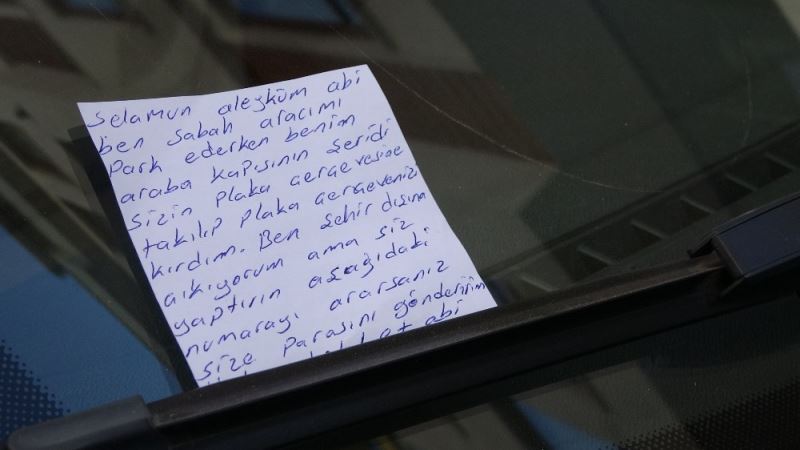 Selamun aleyküm abi
ben sabah aracımı
Park ederken benim
araba kapısının şeridi
sizin plaka çerçevesine
takılıp plaka çerçevenizi
kırdım. Ben şehir dışına
çıkıyorum ama siz
yaptırın aşağıdaki
numarayı ararsanız
size parasını gönderirim
abi